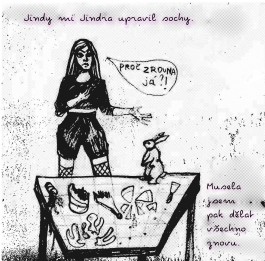 Jindy mi Jindra upravil sochy.
PROČ ZROVNA
JÁ?!
Musela
jsem
pak dělat
všechno
znovu.